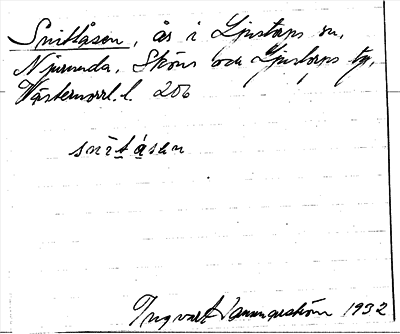 Snittåsen, ås i Ljustorps sn,
Njurunda, Sköns och Ljustorps tg,
Västernorrl. l. 206
snitåsen
Ingvar 1932